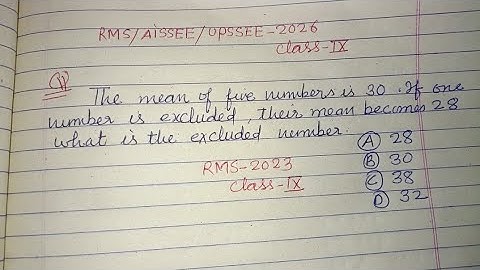 RMS/AiSSEE/UPSSEE-2026
Class-IX
Q) The mean of five numbers is 30. If one
number is excluded, their mean becomes 28
what is the excluded number.
(A) 28
(B) 30
(C) 38
(D) 32
RMS-2023
Class-IX